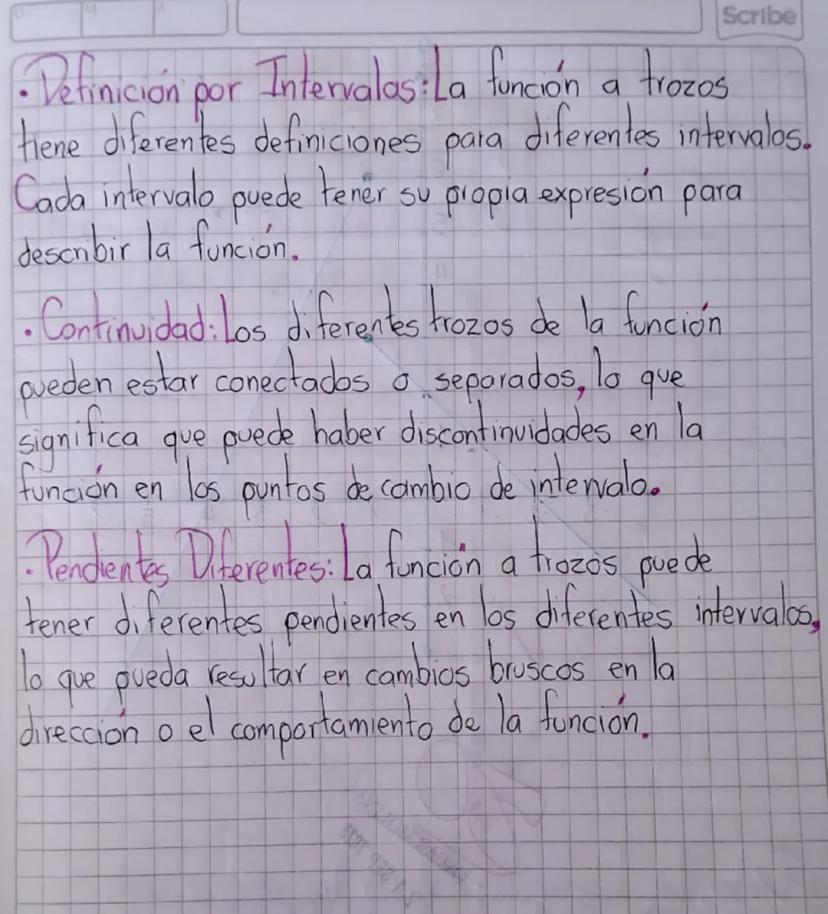 Scribe
· Definición por Intervalos: La función a trozos
tiene diferentes definiciones para diferentes intervalos.
Cada intervalo puede tener su propia expresión para
describir la función.
· Continuidad: Los diferentes trozos de la función
pueden estar conectados o separados, lo que
significa que puede haber discontinuidades en la
función en los puntos de cambio de intervalo.
· Pendientes Diferentes: La función a trozos puede
tener diferentes pendientes en los diferentes intervalos,
lo que pueda resultar en cambios bruscos en la
dirección o el comportamiento de la función.